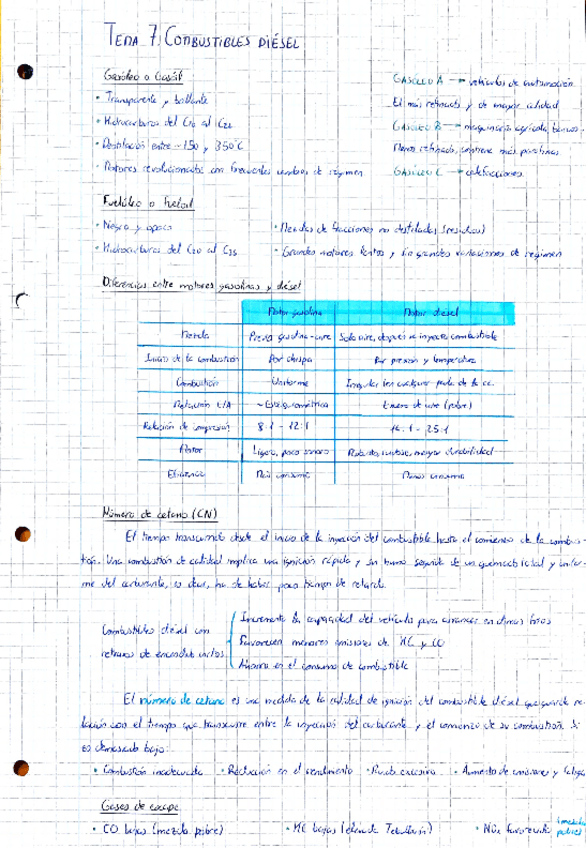 TEMA 7: COMBUSTIBLES DIÉSEL
Gasóleo o Gasoil
• Transparente y brillante
• Hidrocarburos del C10 al C22
• Destilación entre ~150 y 350°C
• Motores revolucionados con frecuentes cambios de régimen
GASÓLEO A → vehículos de automoción
El más refinado y de mayor calidad
GASÓLEO B → maquinaria agrícola, barcos
Menos refinado, contiene más parafinas
GASÓLEO C → calefacciones
Fuelóleo o Fueloil
• Negro y opaco
• Hidrocarburos del C20 al C35
• Mezclas de fracciones no destiladas (residuos)
• Grandes motores lentos y sin grandes variaciones de régimen
Diferencias entre motores gasolinas y diésel
Motor gasolina Motor diésel
Mezcla Previa gasolina-aire Solo aire, después se inyecta combustible
Inicio de la combustión Por chispa Por presión y temperatura
Combustión Uniforme Irregular (en cualquier parte de la cc.
Relación C/A ~Estequiométrica Exceso de aire (pobre)
Relación de compresión 8:1 - 12:1 16:1 - 25:1
Motor Ligero, poco sonoro Robusto, mayor durabilidad
Eficiencia Más consumo Menos consumo
Número de cetano (CN)
El tiempo transcurrido desde el inicio de la inyección del combustible hasta el comienzo de la combus-
tión. Una combustión de calidad implica una ignición rápida y sin humo seguida de un quemado total y unifor-
me del carburante, es decir, ha de haber poco tiempo de retardo.
Combustibles diésel con
retrasos de encendido cortos
Incrementa la capacidad del vehículo para arrancar en climas fríos
Favorecen menores emisiones de HC y CO
Ahorro en el consumo de combustible
El número de cetano es una medida de la calidad de ignición del combustible diésel que guarda re-
lación con el tiempo que transcurre entre la inyección del carburante y el comienzo de su combustión. Si
es demasiado bajo:
• Combustión inadecuada • Reducción en el rendimiento • Ruido excesivo • Aumento de emisiones y fatiga
Gases de escape
• CO bajas (mezcla pobre) • HC bajas • NOx (mezclas
pobres)